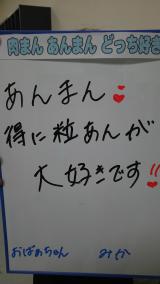 肉まん あんまん どっち好き
あんまん
得に粒あんが
大好きです!!
おばあちゃん みか